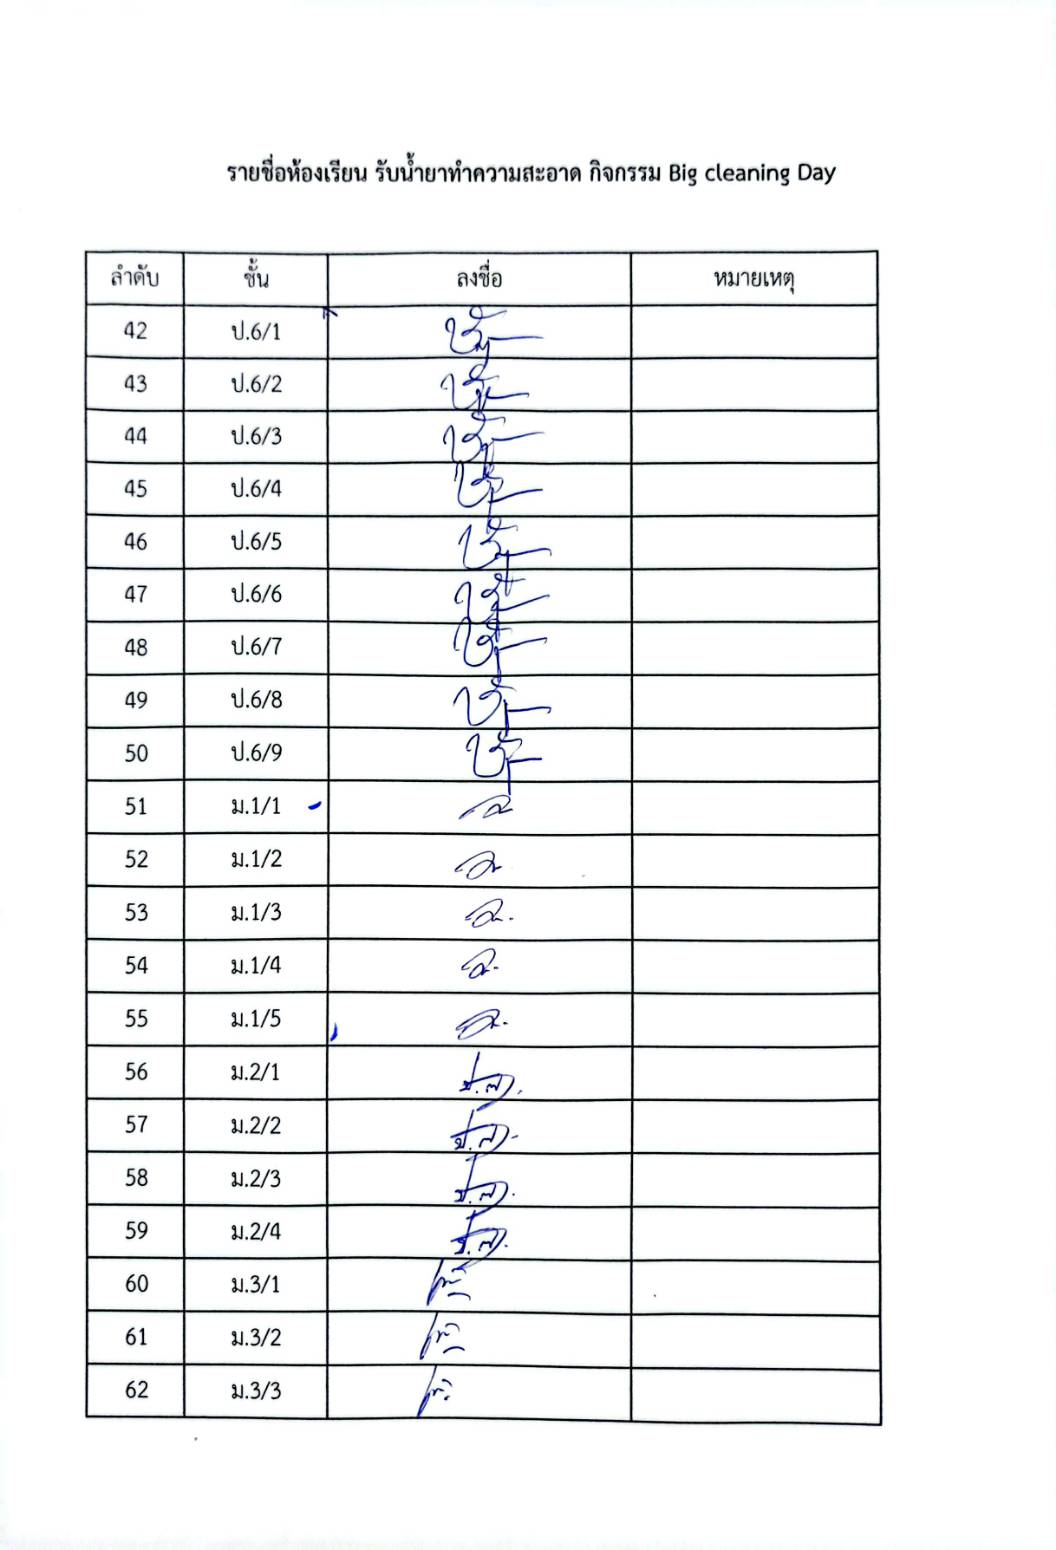 รายชื่อห้องเรียน รับน้ำยาทำความสะอาด กิจกรรม Big cleaning Day
ลำดับ ชั้น ลงชื่อ หมายเหตุ
42 ป.6/1
43 ป.6/2
44 ป.6/3
45 ป.6/4
46 ป.6/5
47 ป.6/6
48 ป.6/7
49 ป.6/8
50 ป.6/9
51 ม.1/1
52 ม.1/2
53 ม.1/3
54 ม.1/4
55 ม.1/5
56 ม.2/1
57 ม.2/2
58 ม.2/3
59 ม.2/4
60 ม.3/1
61 ม.3/2
62 ม.3/3